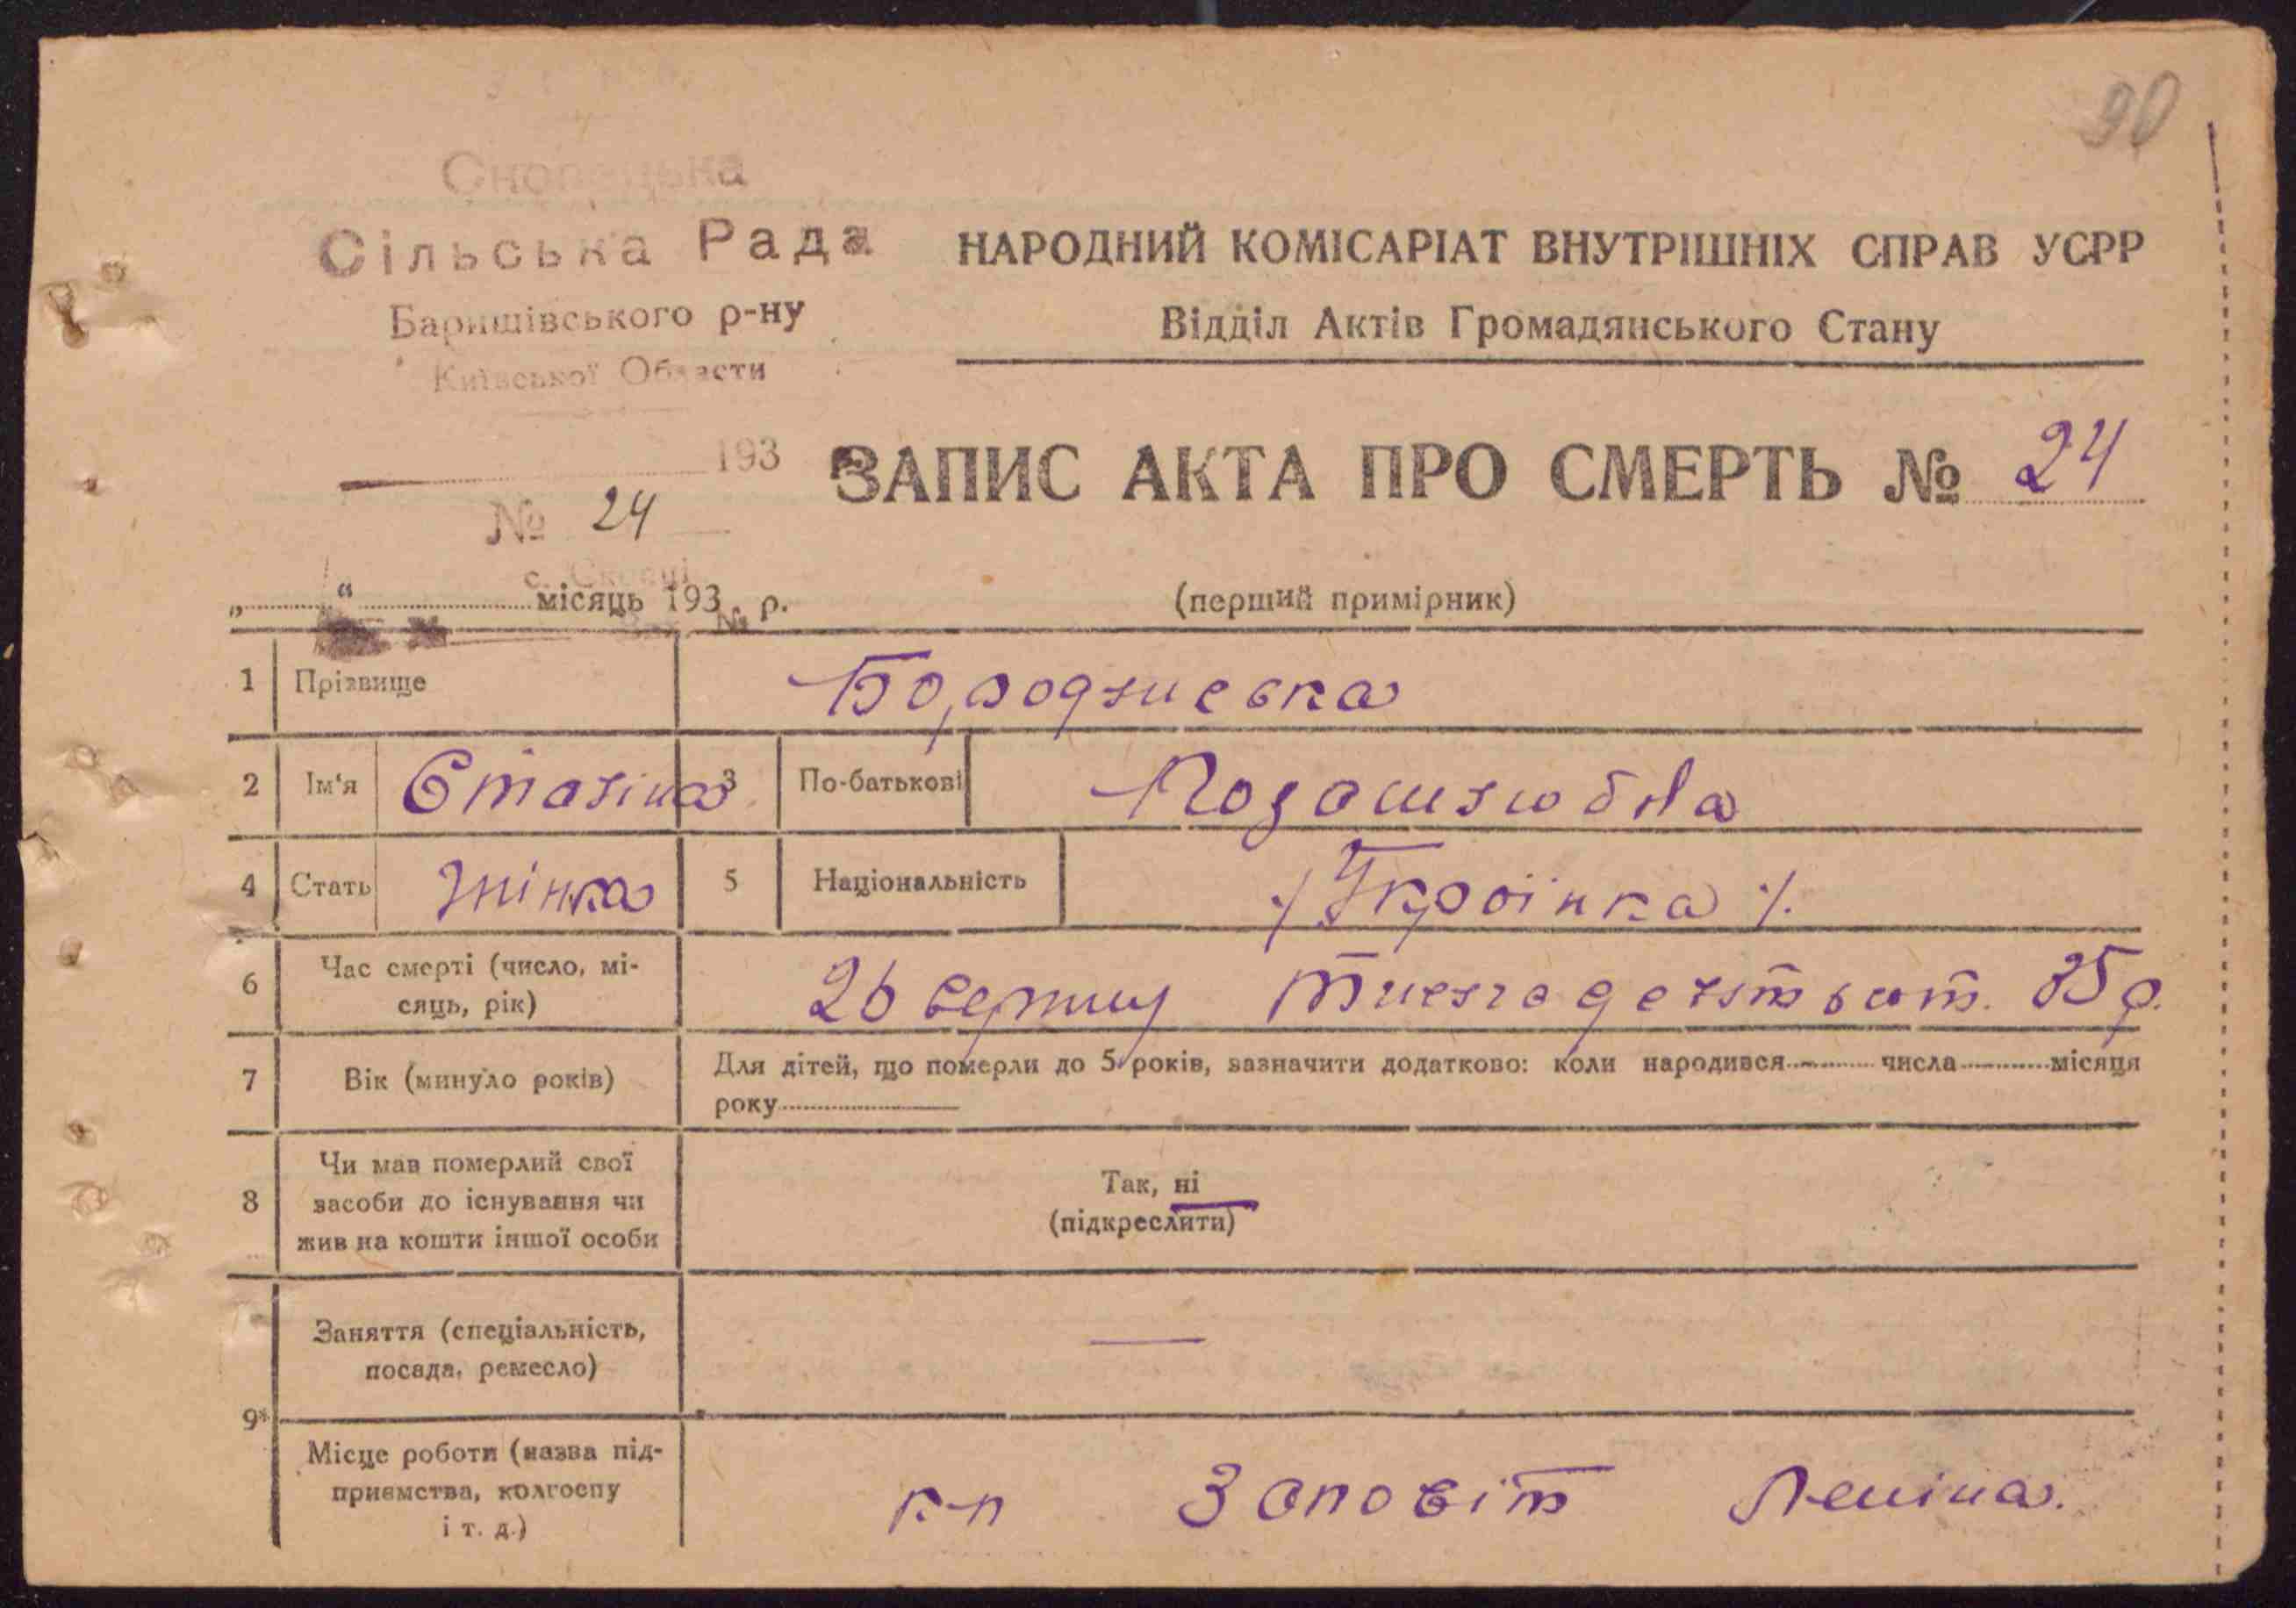 90
Сільська Рада
Баришівського р-ну
Київської Области
193
№ 24
НАРОДНИЙ КОМІСАРІАТ ВНУТРІШНІХ СПРАВ УСРР
Відділ Актів Громадянського Стану
ЗАПИС АКТА ПРО СМЕРТЬ № 24
„ “ місяць 193 р.
(перший примірник)
1 Прізвище
2 Ім'я 3 По-батькові
4 Стать Жінка 5 Національність Укроїнка
6 Час смерті (число, мі-
сяць, рік) 26 серпня 35 р.
7 Вік (минуло років) Для дітей, що померли до 5 років, зазначити додатково: коли народився числа місяця
року
8 Чи мав померлий свої
засоби до існування чи
жив на кошти іншої особи
Так, ні
(підкреслити)
Заняття (спеціальність,
посада, ремесло) —
9*
Місце роботи (назва під-
приємства, колгоспу
і т. д.)
к-п Заповіт Леніна.